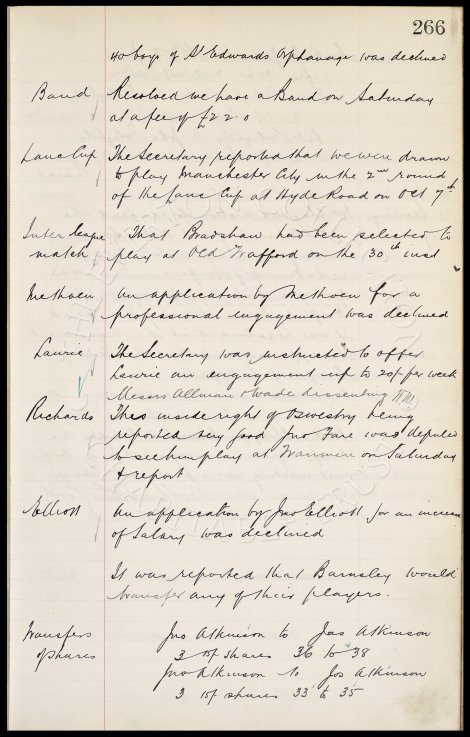 266
40 boys of St Edwards Orphanage was declined
Band Resolved we have a Band on Saturday
at a fee of £2.2.0
Lanc Cup The Secretary reported that we were drawn
to play Manchester City in the 2nd round
of the Lanc Cup at Hyde Road on Oct 7th
Inter League That Bradshaw had been selected to
match play at Old Trafford on the 30th inst
Methven An application by Methven for a
professional engagement was declined
Laurie The Secretary was instructed to offer
Laurie an engagement up to 20/- per week
Messrs Allman & Wade dissenting
Richards This inside right of Oswestry being
reported very good Jno Fare was deputed
to see him play at Tranmere on Saturday
& report
Elliott An application by Jno Elliott for an increase
of Salary was declined
It was reported that Barnsley would
transfer any of their players.
Transfers Jno Atkinson to Jas Atkinson
of shares 3 15/- shares 36 to 38
Jno Atkinson to Jos Atkinson
3 15/- shares 33 to 35